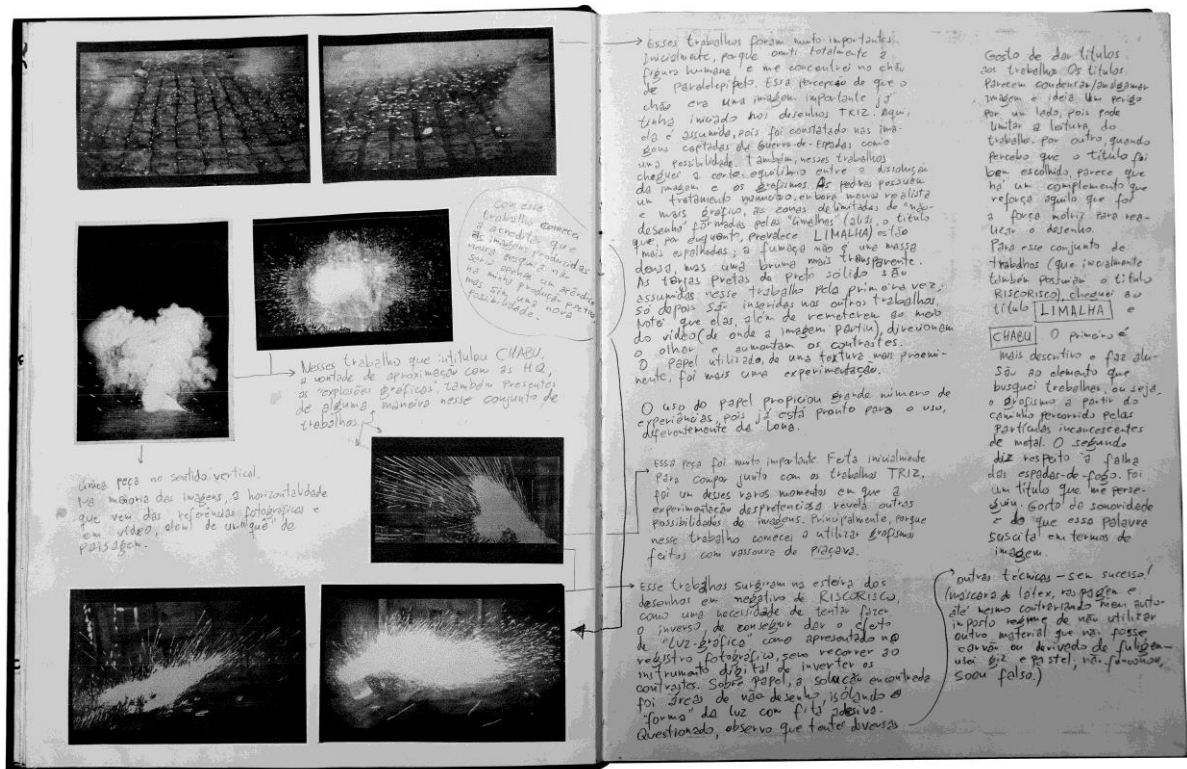 Com esse
trabalho comecei
a acreditar que
as imagens produzidas
nessa pesquisa não
seria apenas um acidente
na minha produção poética
mas sim uma nova
possibilidade.
Nesses trabalho que intitulou CHABU,
a vontade de aproximação com as HQ,
as "explosões gráficas" também presentes
de alguma maneira nesse conjunto de
trabalhos
Única peça no sentido vertical.
Na maioria das imagens, a horizontalidade
que vem das referências fotográficas e
em vídeo, além de um "quê" de
paisagem.
Esses trabalhos foram muito importantes.
Inicialmente, porque omiti totalmente a
figura humana e me concentrei no chão
de paralelepípedo. Essa percepção de que o
chão era uma imagem importante já
tinha iniciado nos desenhos TRIZ. Aqui,
ela é assumida, pois foi constatada nas ima-
gens captadas da Guerra-de-Espadas como
uma possibilidade. Também, nesses trabalhos
cheguei a certo equilíbrio entre a dissolução
da imagem e os grafismos. As pedras possuem
um tratamento numeroso, embora menos realista
e mais gráfico, as zonas delimitadas de "não-
desenho" formadas pelas "limalhas" (aliás, o título
que, por enquanto, prevalece LIMALHA) estão
mais espalhadas; a fumaça não é uma massa
densa, mas uma bruma mais transparente.
As tarjas pretas de preto sólido são
assumidas nesse trabalho pela primeira vez,
só depois são inseridas nos outros trabalhos.
Notei que elas, além de remeterem ao meio
do vídeo (de onde a imagem partiu), direcionam
o olhar e aumentam os contrastes.
O papel utilizado, de uma textura mais proemi-
nente, foi mais uma experimentação.
O uso do papel propiciou grande número de
experiências, pois já está pronto para o uso,
diferentemente da Lona.
Essa peça foi muito importante. Feita inicialmente
para compor junto com os trabalhos TRIZ,
foi um desses raros momentos em que a
experimentação despretensiosa revela outras
possibilidades de imagens. Principalmente, porque
nesse trabalho comecei a utilizar grafismo
feitos com vassoura de piaçava.
Esse trabalhos surgiram na esteira dos
desenhos em negativo de RISCORISCO,
como uma necessidade de tentar fazer
o inverso, de conseguir dar o efeito
de "luz-gráfica" como apresentado no
registro fotográfico, sem recorrer ao
instrumento digital de inverter os
contrastes. Sobre papel, a solução encontrada
foi áreas de não desenho, isolando a
"forma" da luz com fita adesiva.
Questionado, observo que tentei diversas
Gosto de dar títulos
ao trabalho. Os títulos
parecem condensar/amalgamar
imagem e ideia. Um perigo
por um lado, pois pode
limitar a leitura do
trabalho, por outro, quando
percebo que o título foi
bem escolhido, parece que
há um complemento que
reforça aquilo que foi
a força motriz para rea-
lizar o desenho.
Para esse conjunto de
trabalhos (que inicialmente
também possuíam o título
RISCORISCO), cheguei ao
título LIMALHA e
CHABU O primeiro é
mais descritivo e faz alu-
são ao elemento que
busquei trabalhar, ou seja,
o grafismo a partir do
caminho percorrido pelas
partículas incandescentes
de metal. O segundo
diz respeito à falha
das espadas-de-fogo. Foi
um título que me perse-
guiu. Gosto da sonoridade
e do que essa palavra
suscita em termos de
imagem.
outras técnicas - sem sucesso!
(máscara de látex, raspagem e
até mesmo contrariando meu auto-
imposto regime de não utilizar
outro material que não fosse
carvão ou derivado de fuligem -
usei giz e pastel, não funcionou,
soou falso.)